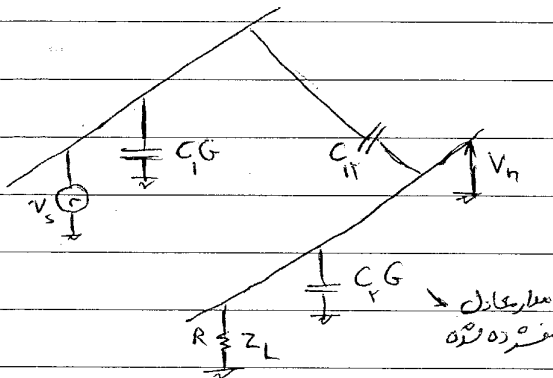 C₁G
C₁₂
Vₙ
Vₛ
C₂G
مدار معادل
فشرده شده
R
Z_L